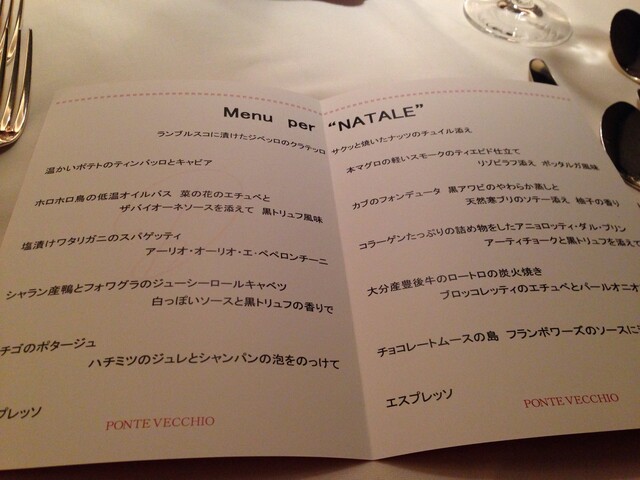 Menu per “NATALE”
ランブルスコに漬けたジベッロのクラテッロ サクッと焼いたナッツのチュイル添え
温かいポテトのティンバッロとキャビア
ホロホロ鳥の低温オイルバス 菜の花のエチュベと
ザバイオーネソースを添えて 黒トリュフ風味
塩漬けワタリガニのスパゲッティ
アーリオ・オーリオ・エ・ペペロンチーニ
シャラン産鴨とフォワグラのジューシーロールキャベツ
白っぽいソースと黒トリュフの香りで
チゴのポタージュ
ハチミツのジュレとシャンパンの泡をのっけて
プレッソ
PONTE VECCHIO
本マグロの軽いスモークのティエピド仕立て
リゾピラフ添え ボッタルガ風味
カブのフォンデュータ 黒アワビのやわらか蒸しと
天然寒ブリのソテー添え 柚子の香り
コラーゲンたっぷりの詰め物をしたアニョロッティ・ダル・プリン
アーティチョークと黒トリュフを添えて
大分産豊後牛のロートロの炭火焼き
ブロッコレッティのエチュベとパールオニオ
チョコレートムースの島 フランボワーズのソースに
エスプレッソ
PONTE VECCHIO